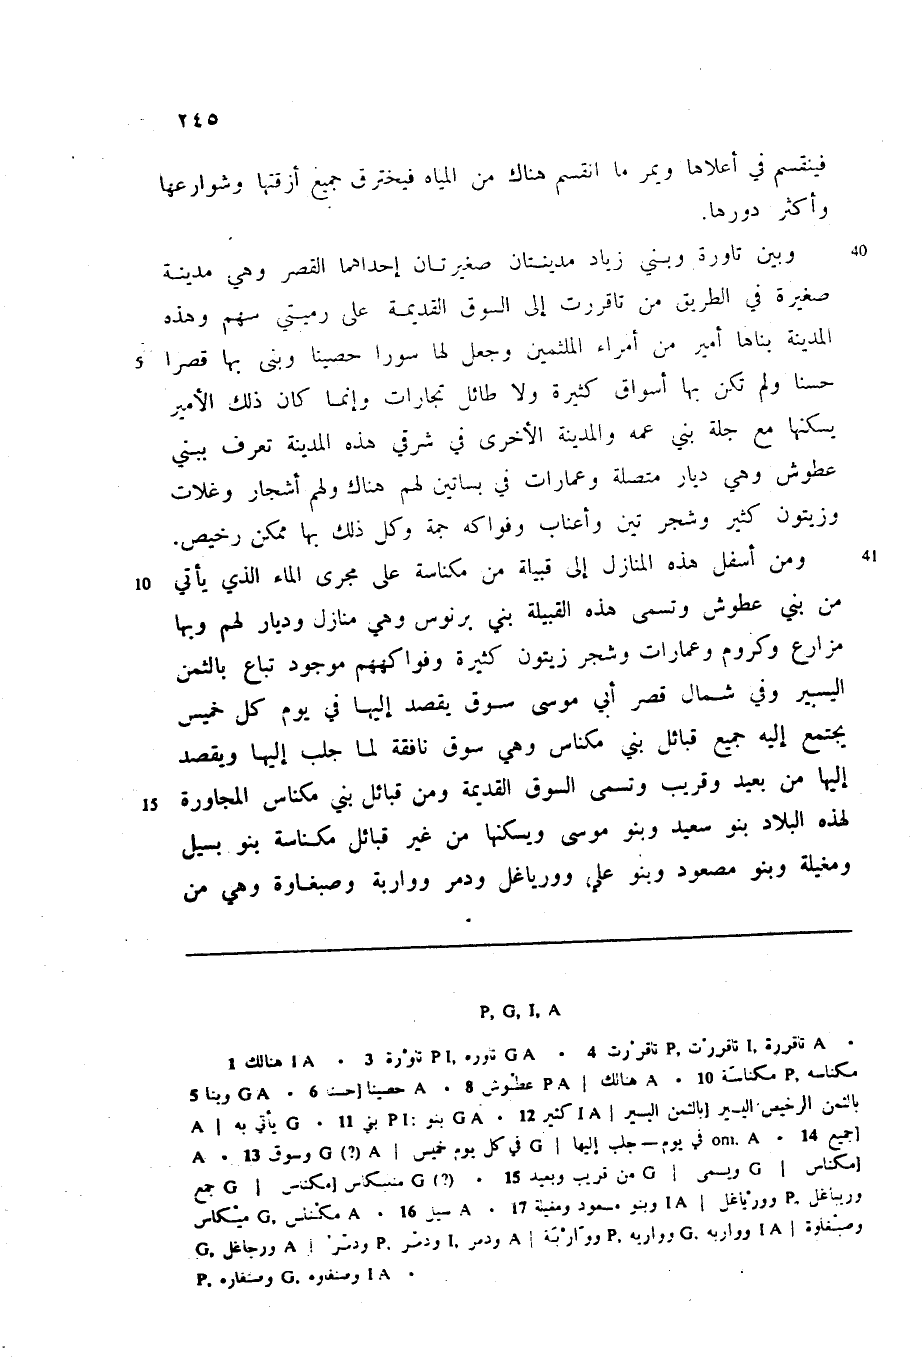 ٢٤٥
فينقسم في أعلاها ويمر ما انقسم هناك من المياه فيخترق جميع أزقتها وشوارعها
وأكثر دورها.
40 وبين تاورة وبني زياد مدينتان صغيرتان إحداهما القصر وهي مدينة
صغيرة في الطريق من تاقررت إلى السوق القديمة على رميتي سهم وهذه
المدينة بناها أمير من أمراء الملثمين وجعل لها سورا حصينا وبنى بها قصرا 5
حسنا ولم تكن بها أسواق كثيرة ولا طائل تجارات وإنما كان ذلك الأمير
يسكنها مع جلة بني عمه والمدينة الأخرى في شرقي هذه المدينة تعرف ببني
عطوش وهي ديار متصلة وعمارات في بساتين لهم هناك ولهم أشجار وغلات
وزيتون كثير وشجر تين وأعناب وفواكه جمة وكل ذلك بها ممكن رخيص.
41 ومن أسفل هذه المنازل إلى قبيلة من مكناسة على مجرى الماء الذي يأتي 10
من بني عطوش وتسمى هذه القبيلة بني برنوس وهي منازل وديار لهم وبها
مزارع وكروم وعمارات وشجر زيتون كثيرة وفواكههم موجود تباع بالثمن
اليسير وفي شمال قصر أبي موسى سوق يقصد إليها في يوم كل خميس
يجتمع إليه جميع قبائل بني مكناس وهي سوق نافقة لما جلب إليها ويقصد
إليها من بعيد وقريب وتسمى السوق القديمة ومن قبائل بني مكناس المجاورة 15
لهذه البلاد بنو سعيد وبنو موسى ويسكنها من غير قبائل مكناسة بنو بسيل
ومغيلة وبنو مصعود وبنو علي وورياغل ودمر وواربة وصبغاوة وهي من
P, G, I, A
1 هنالك I A • 3 تاوْرة P I, تاوره G A • 4 تاقرْرت P, تاقررْت I, تاقررة A •
5 وبنا G A • 6 حصينا] حسنا A • 8 عطّوش P A | هنالك A • 10 مكناسَة P, مكناسه
A | يأتي به G • 11 بني P I: بنو G A • 12 كثير I A | بالثمن اليسير] بالثمن الرخيص اليسير
A • 13 وسوق G (?) A | في كل يوم خميس G | في يوم — جلب إليها om. A • 14 جميع]
جمع G | مكناس] G (?) • 15 من قريب وبعيد G | ويسمى G | مكناس]
G, A • 16 سيل A • 17 وبنو مسعود ومغيلة I A | وورْياغل P, ورياغل
G, ورجاغل A | ودمّرْ P, ودمّر I, ودمر A | P, وواربه G, وواربه I A |
P, G, I A •